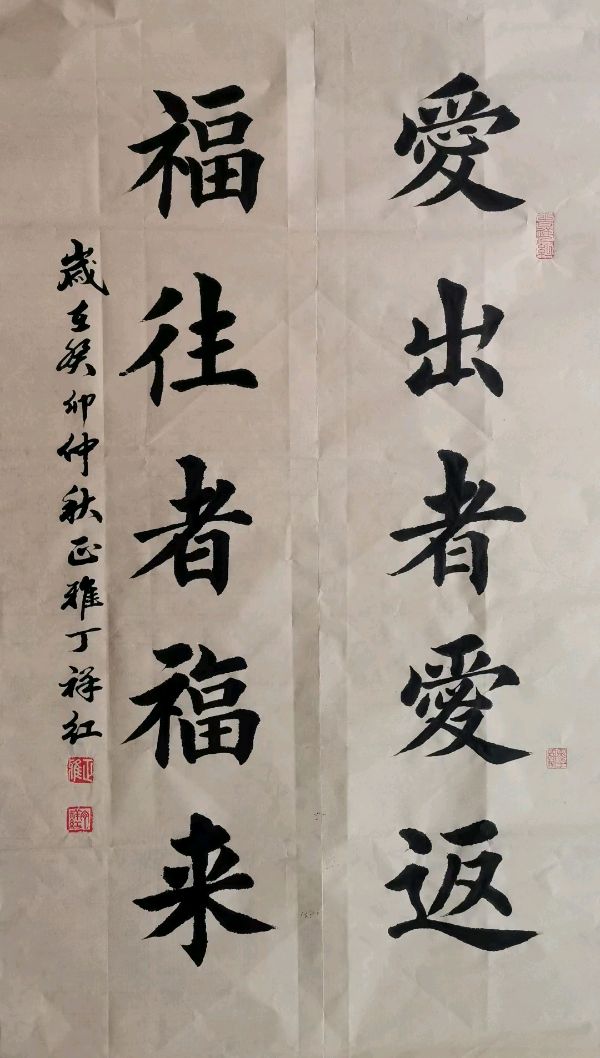 愛出者愛返
福往者福来
歲在癸卯仲秋正雅丁祥红
正雅